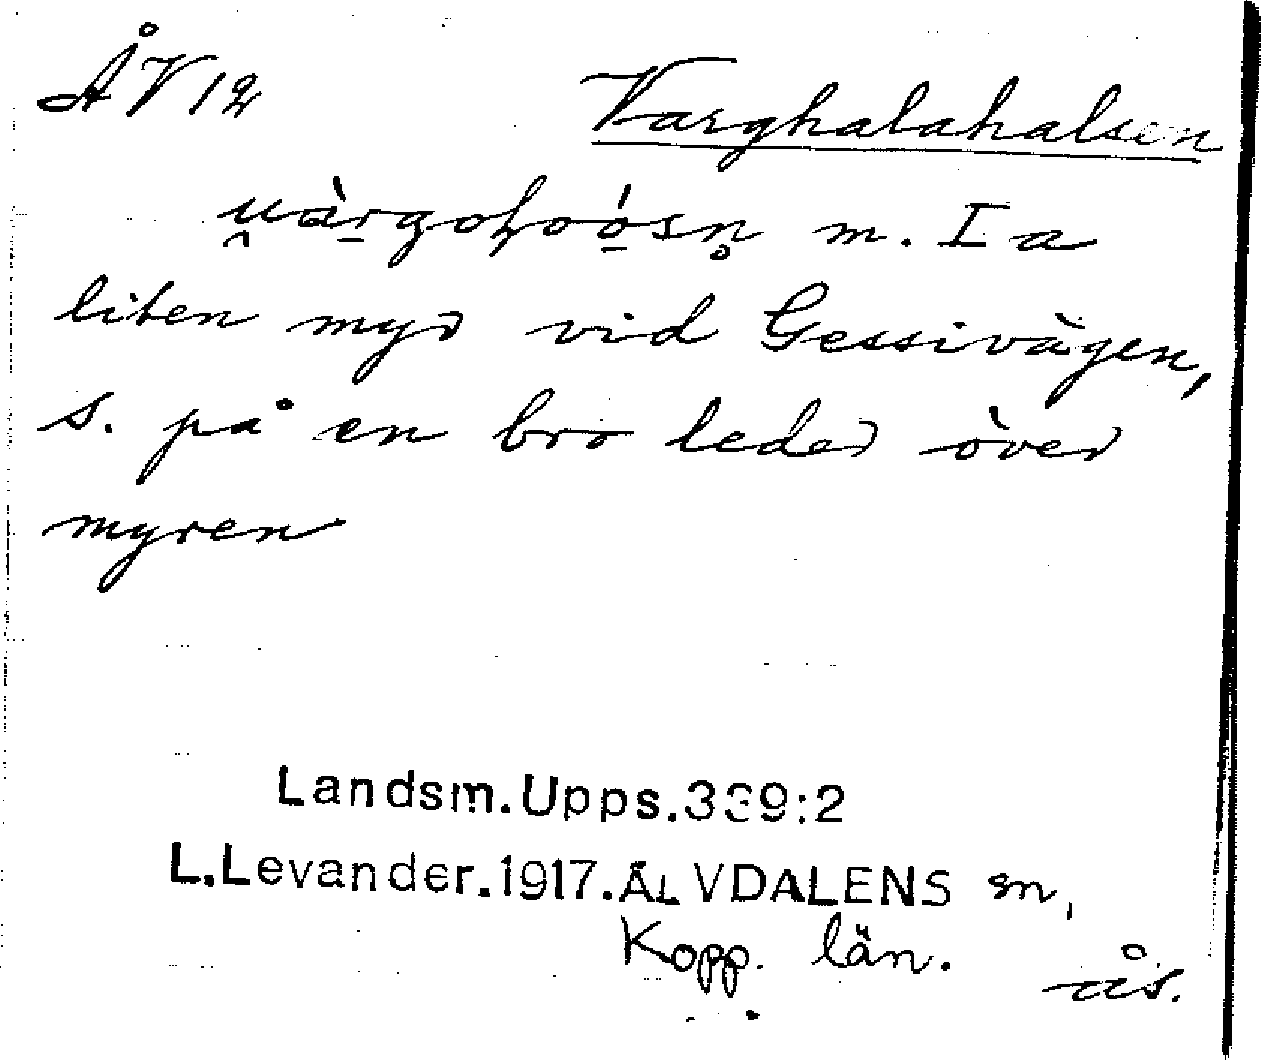 ÅV 12 Varghalahalsen
m. I a
liten myr vid Gessivägen,
s. på en bro leder över
myren
Landsm.Upps.339:2
L.Levander.1917.ÄLVDALENS sn,
Kopp. län.
ås.